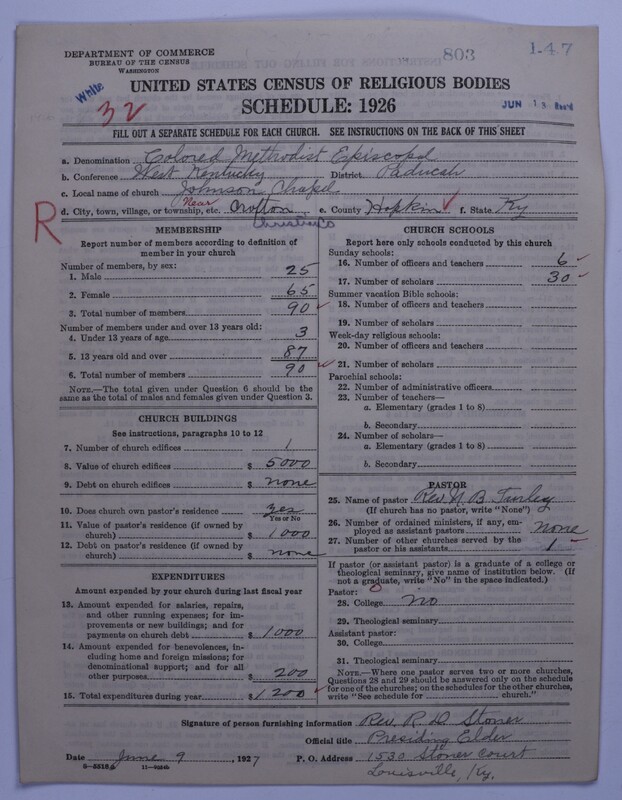 803
1-4-7
DEPARTMENT OF COMMERCE
BUREAU OF THE CENSUS
WASHINGTON
White
32
UNITED STATES CENSUS OF RELIGIOUS BODIES
SCHEDULE: 1926
JUN 13 Rec'd
FILL OUT A SEPARATE SCHEDULE FOR EACH CHURCH. SEE INSTRUCTIONS ON THE BACK OF THIS SHEET
a. Denomination Colored Methodist Episcopal
b. Conference West Kentucky District Paducah
c. Local name of church Johnson Chapel
R
d. City, town, village, or township, etc. Near Crofton e. County Hopkin f. State Ky
Christian Co
MEMBERSHIP
Report number of members according to definition of member in your church
Number of members, by sex:
1. Male 25
2. Female 65
3. Total number of members 90
Number of members under and over 13 years old:
4. Under 13 years of age 3
5. 13 years old and over 87
6. Total number of members 90
NOTE.—The total given under Question 6 should be the same as the total of males and females given under Question 3.
CHURCH BUILDINGS
See instructions, paragraphs 10 to 12
7. Number of church edifices 1
8. Value of church edifices $ 5000
9. Debt on church edifices $ none
10. Does church own pastor's residence yes
Yes or No
11. Value of pastor's residence (if owned by church) $ 1000
12. Debt on pastor's residence (if owned by church) $ none
EXPENDITURES
Amount expended by your church during last fiscal year
13. Amount expended for salaries, repairs, and other running expenses; for improvements or new buildings; and for payments on church debt $ 1000
14. Amount expended for benevolences, including home and foreign missions; for denominational support; and for all other purposes $ 200
15. Total expenditures during year $ 1200
CHURCH SCHOOLS
Report here only schools conducted by this church
Sunday schools:
16. Number of officers and teachers 6
17. Number of scholars 30
Summer vacation Bible schools:
18. Number of officers and teachers
19. Number of scholars
Week-day religious schools:
20. Number of officers and teachers
21. Number of scholars
Parochial schools:
22. Number of administrative officers
23. Number of teachers—
a. Elementary (grades 1 to 8)
b. Secondary
24. Number of scholars—
a. Elementary (grades 1 to 8)
b. Secondary
PASTOR
25. Name of pastor Rev. N. B.
(If church has no pastor, write "None")
26. Number of ordained ministers, if any, employed as assistant pastors None
27. Number of other churches served by the pastor or his assistants 1
If pastor (or assistant pastor) is a graduate of a college or theological seminary, give name of institution below. (If not a graduate, write "No" in the space indicated.)
Pastor:
28. College No
29. Theological seminary
Assistant pastor:
30. College
31. Theological seminary
NOTE.—Where one pastor serves two or more churches, Questions 28 and 29 should be answered only on the schedule for one of the churches; on the schedules for the other churches, write "See schedule for church."
Signature of person furnishing information Rev. R. D. Stoner
Official title Presiding Elder
Date June 9, 1927 P. O. Address 1530 Stoner Court
Louisville, Ky.